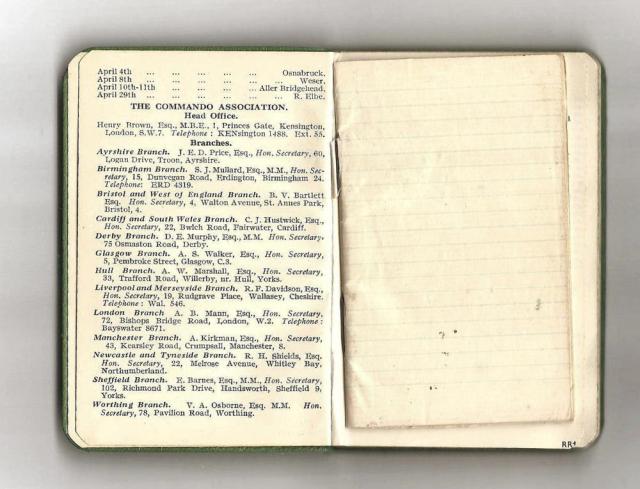 April 4th ... ... ... ... ... Osnabruck.
April 8th ... ... ... ... ... Weser.
April 10th-11th ... ... ... ... Aller Bridgehead.
April 29th ... ... ... ... ... R. Elbe.
THE COMMANDO ASSOCIATION.
Head Office.
Henry Brown, Esq., M.B.E., 1, Princes Gate, Kensington,
London, S.W.7. Telephone: KENsington 1488. Ext. 55.
Branches.
Ayrshire Branch. J. E. D. Price, Esq., Hon. Secretary, 60,
Logan Drive, Troon, Ayrshire.
Birmingham Branch. S. J. Mullard, Esq., M.M., Hon. Sec-
retary, 15, Dunvegan Road, Erdington, Birmingham 24.
Telephone: ERD 4319.
Bristol and West of England Branch. B. V. Bartlett
Esq. Hon. Secretary, 4, Walton Avenue, St. Annes Park,
Bristol, 4.
Cardiff and South Wales Branch. C. J. Hustwick, Esq.,
Hon. Secretary, 22, Bwlch Road, Fairwater, Cardiff.
Derby Branch. D. E. Murphy, Esq., M.M. Hon. Secretary.
75 Osmaston Road, Derby.
Glasgow Branch. A. S. Walker, Esq., Hon. Secretary,
5, Pembroke Street, Glasgow, C.3.
Hull Branch. A. W. Marshall, Esq., Hon. Secretary,
33, Trafford Road, Willerby, nr. Hull, Yorks.
Liverpool and Merseyside Branch. R. F. Davidson, Esq.,
Hon. Secretary, 19, Rudgrave Place, Wallasey, Cheshire.
Telephone: Wal. 546.
London Branch A. B. Mann, Esq., Hon. Secretary,
72, Bishops Bridge Road, London, W.2. Telephone:
Bayswater 8671.
Manchester Branch. A. Kirkman, Esq., Hon. Secretary,
43, Kearsley Road, Crumpsall, Manchester, 8.
Newcastle and Tyneside Branch. R. H. Shields, Esq.
Hon. Secretary, 22, Melrose Avenue, Whitley Bay,
Northumberland.
Sheffield Branch. E. Barnes, Esq., M.M., Hon. Secretary,
102, Richmond Park Drive, Handsworth, Sheffield 9,
Yorks.
Worthing Branch. V. A. Osborne, Esq. M.M. Hon.
Secretary, 78, Pavilion Road, Worthing.